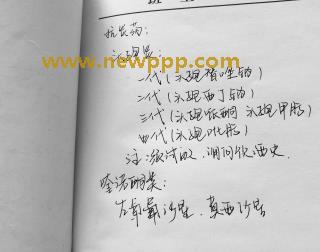 抗炎药:
头孢类:
一代(头孢唑啉钠)
二代(头孢西丁钠)
三代(头孢哌酮 头孢甲肟)
四代(头孢吡肟)
注: 做皮试 询问饮酒史.
喹诺酮类:
左氧氟沙星, 莫西沙星
www.newppp.com